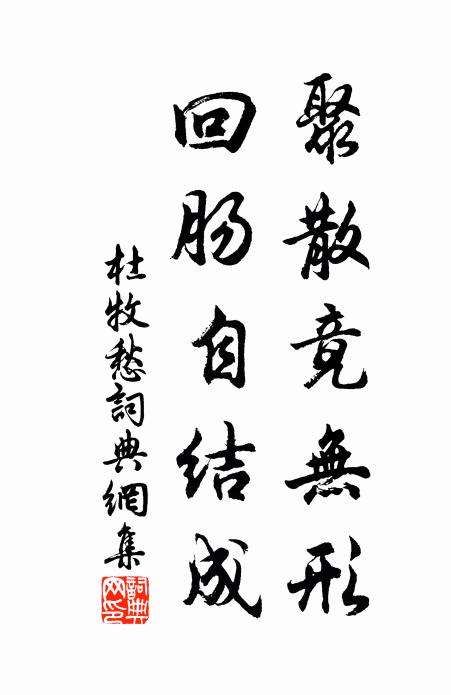 聚散竟無形
回腸自結成
杜牧愁詞典網集
詞典網印